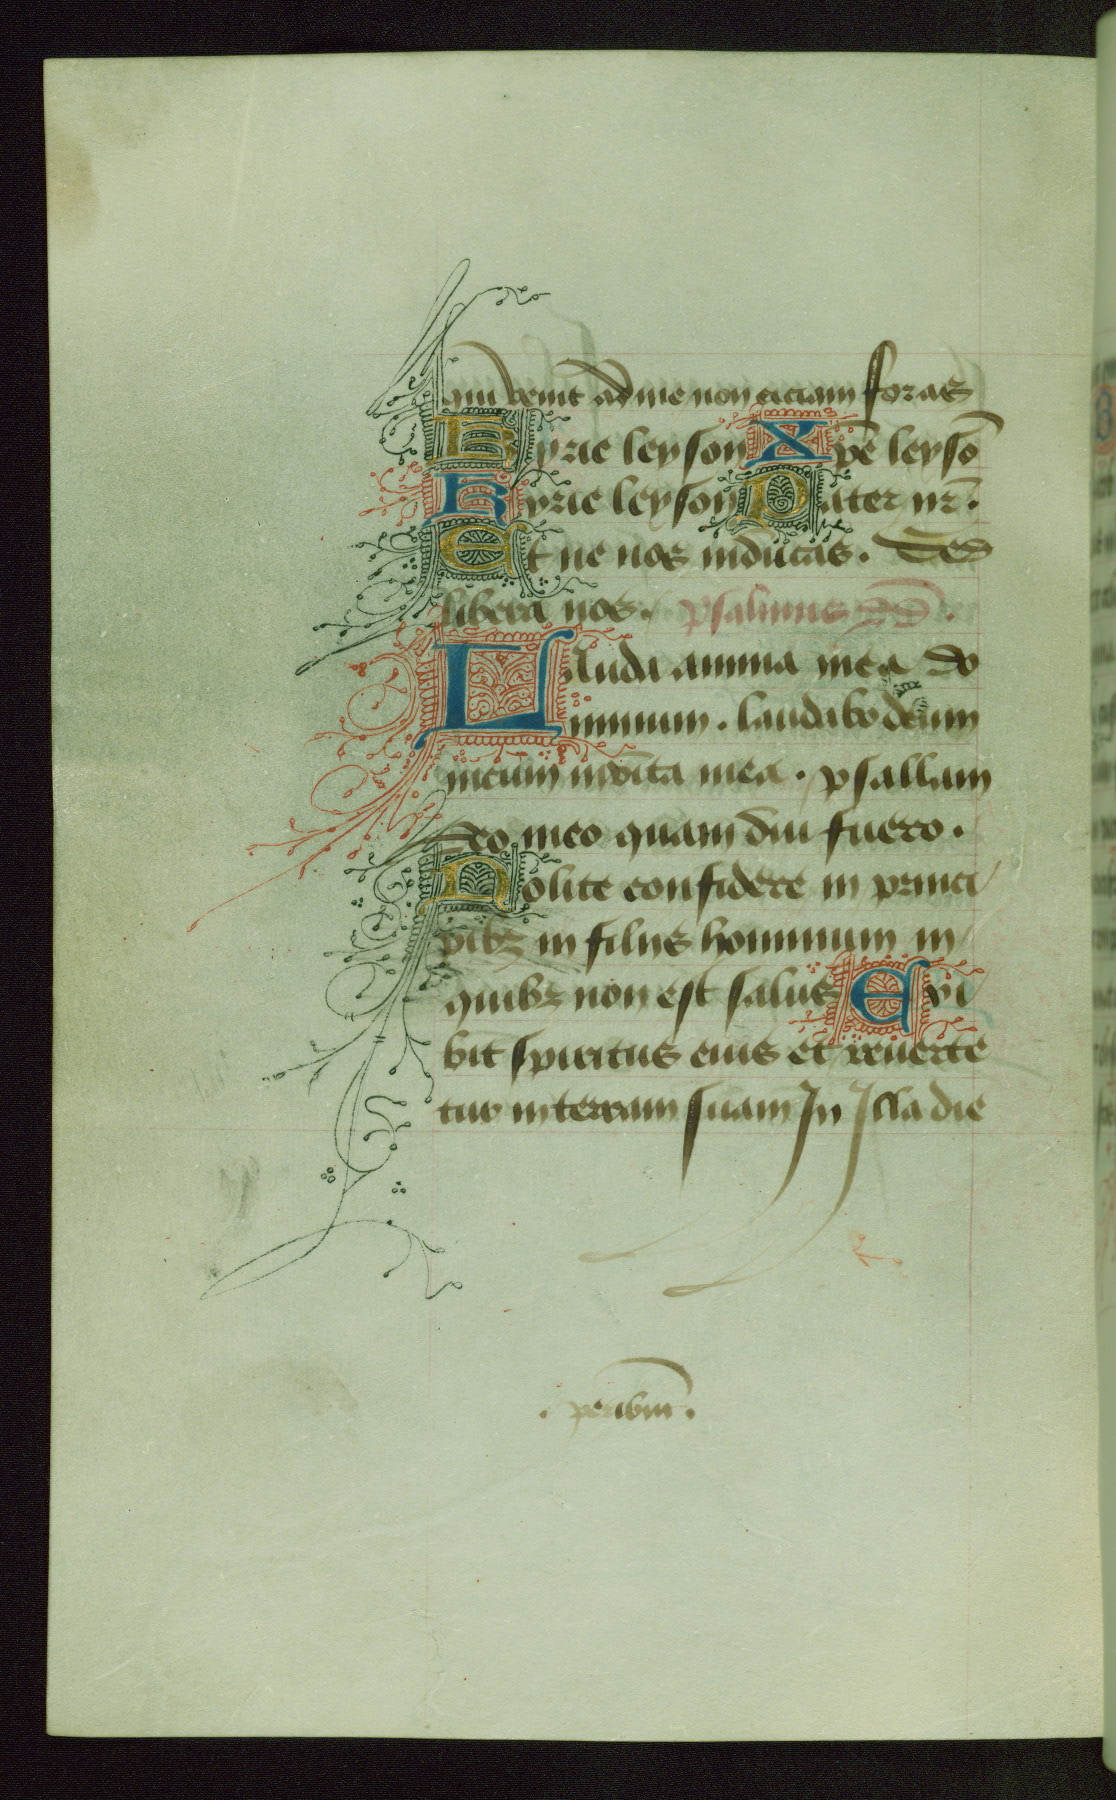 qui venit ad me non eiciam foras
Kyrie leyson Xp̄e leysō
Kyrie leyson Pater nr̄.
Et ne nos inducas. Sed
libera nos. psalmus dd.
Lauda anima mea do
minum. laudabo deum
meum in vita mea. psallam
deo meo quam diu fuero.
Nolite confidere in princi
pibꝫ in filiis hominum in
quibꝫ non est salus Exi
bit spiritus eius et reuerte
tur in terram suam In Illa die
. peribūt .